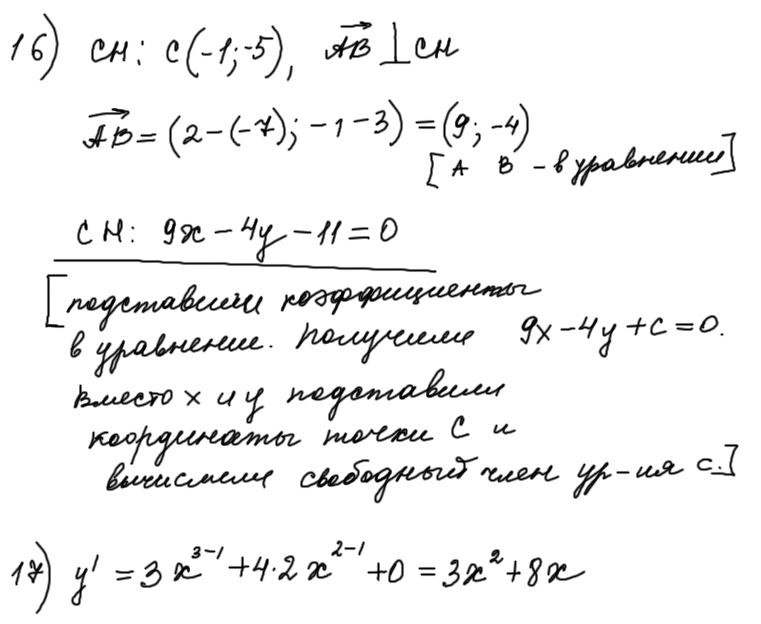 16) CH: C(-1;-5), AB⃗ ⊥ CH
AB⃗ = (2-(-7); -1-3) = (9; -4)
[A B - в уравнении]
CH: 9x - 4y - 11 = 0
[подставили коэффициенты
в уравнение. Получили 9x-4y+c=0.
Вместо x и y подставили
координаты точки C и
вычислили свободный член ур-ия c.]
17) y' = 3x³⁻¹ + 4·2x²⁻¹ + 0 = 3x² + 8x